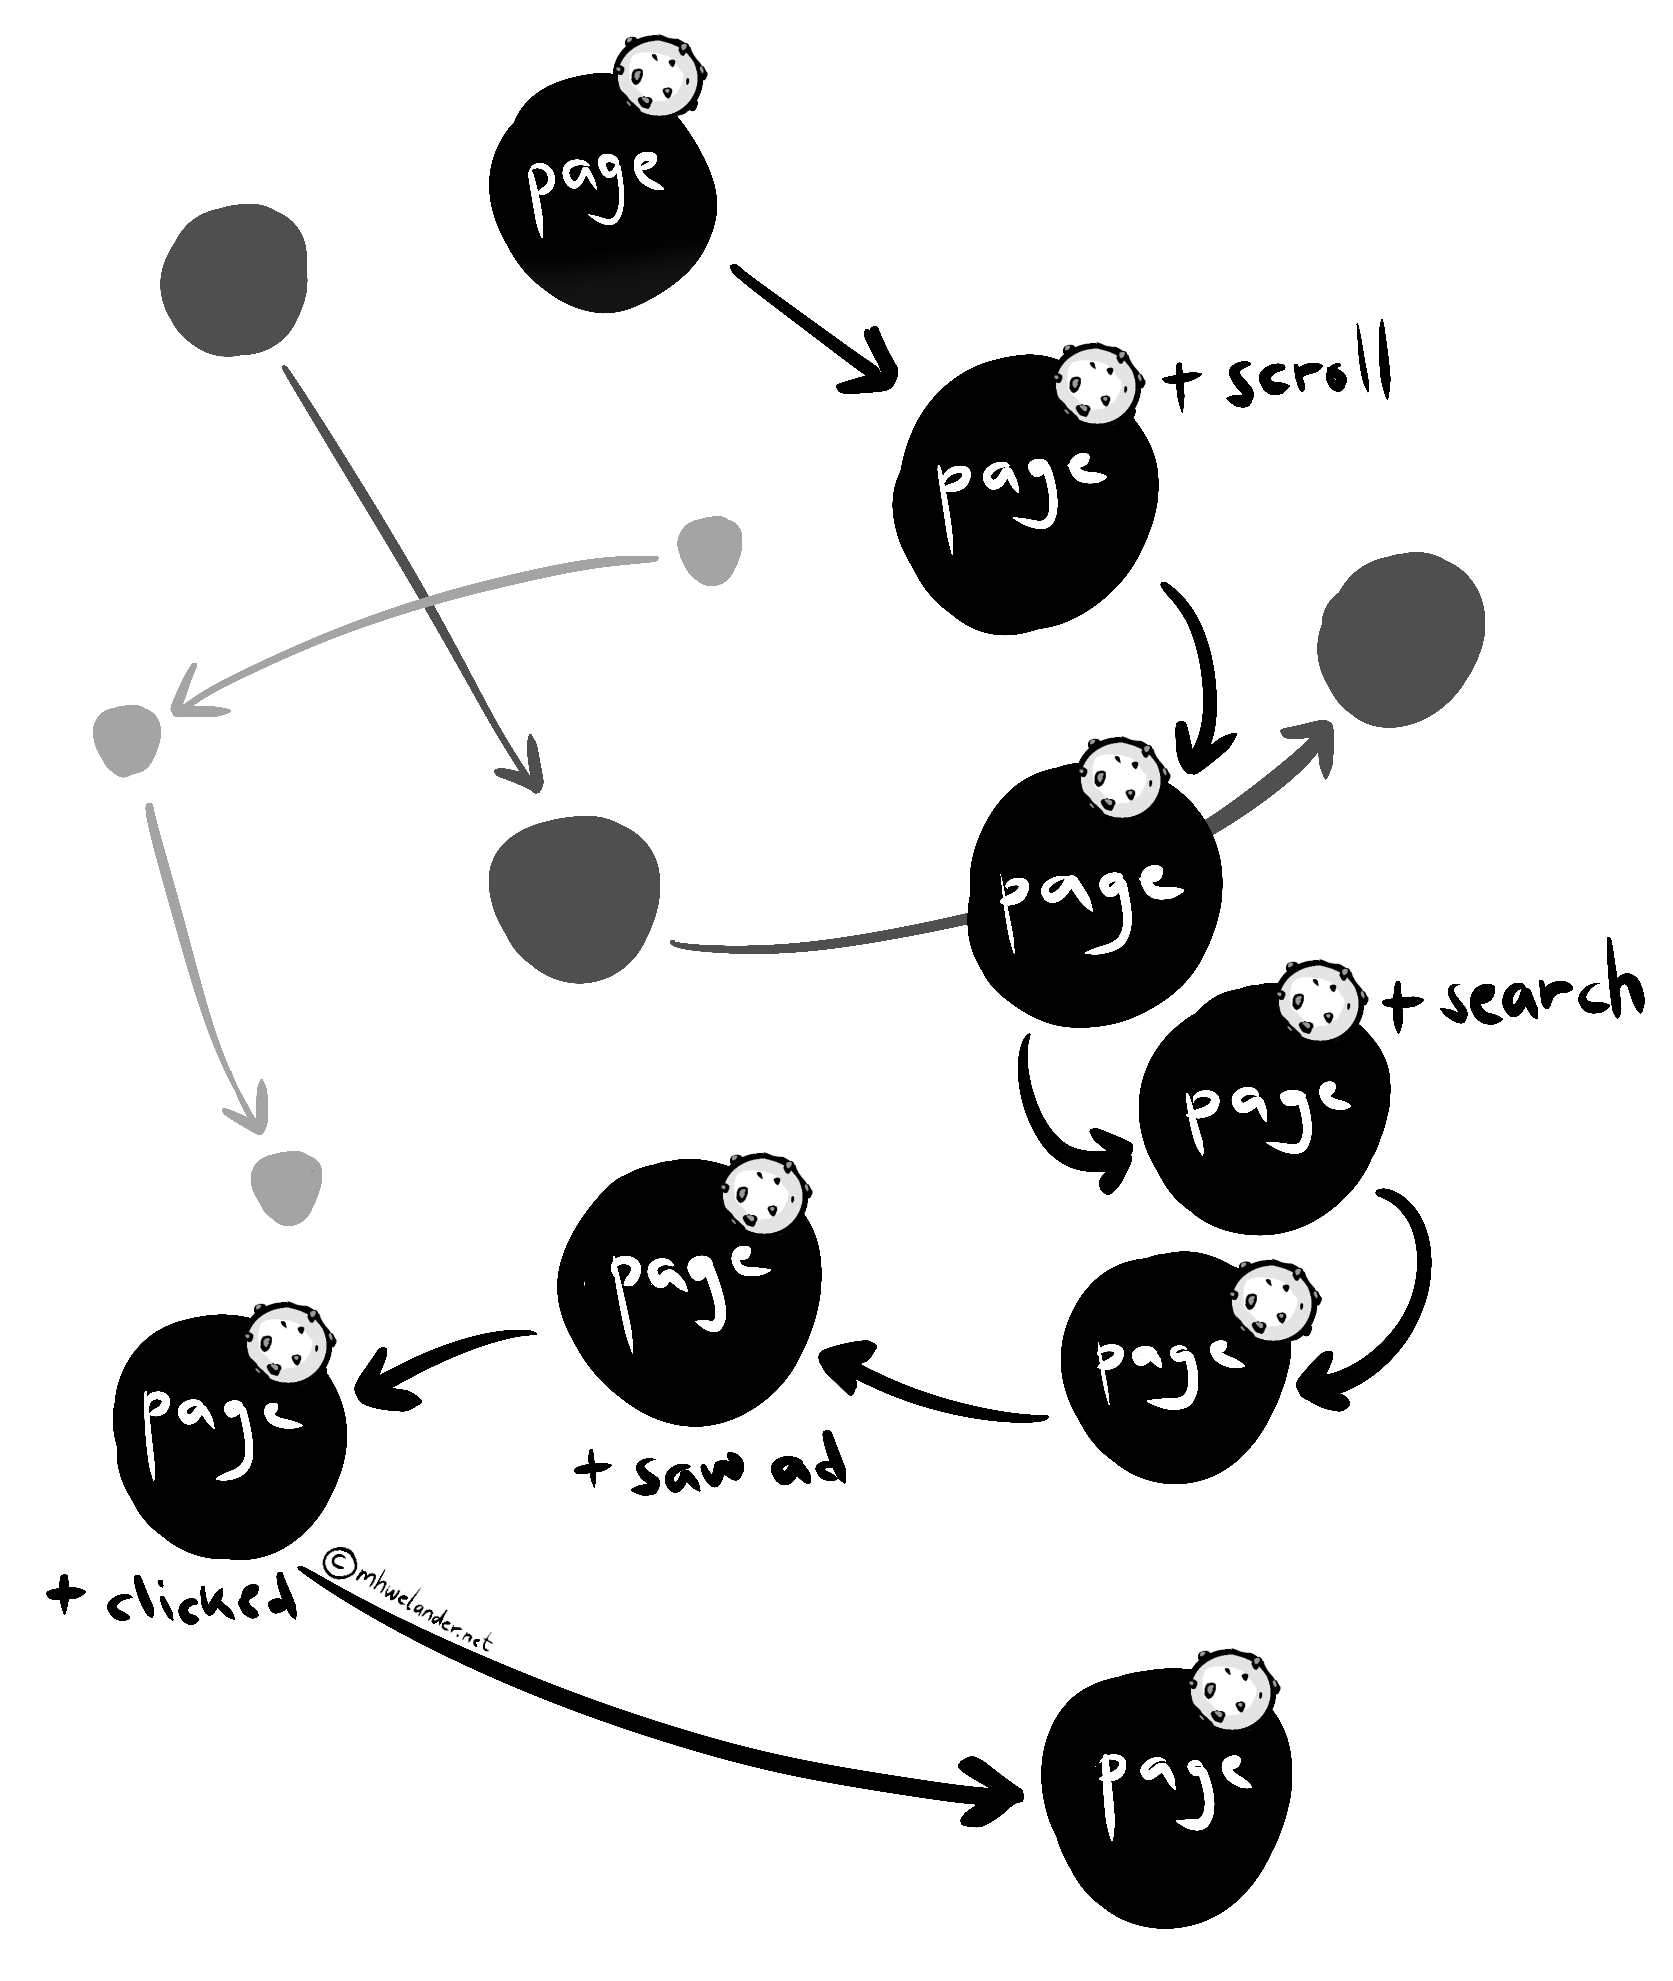 page
+ scroll
page
page
+ search
page
page
page
+ saw ad
page
+ clicked
©mhwelander.net
page